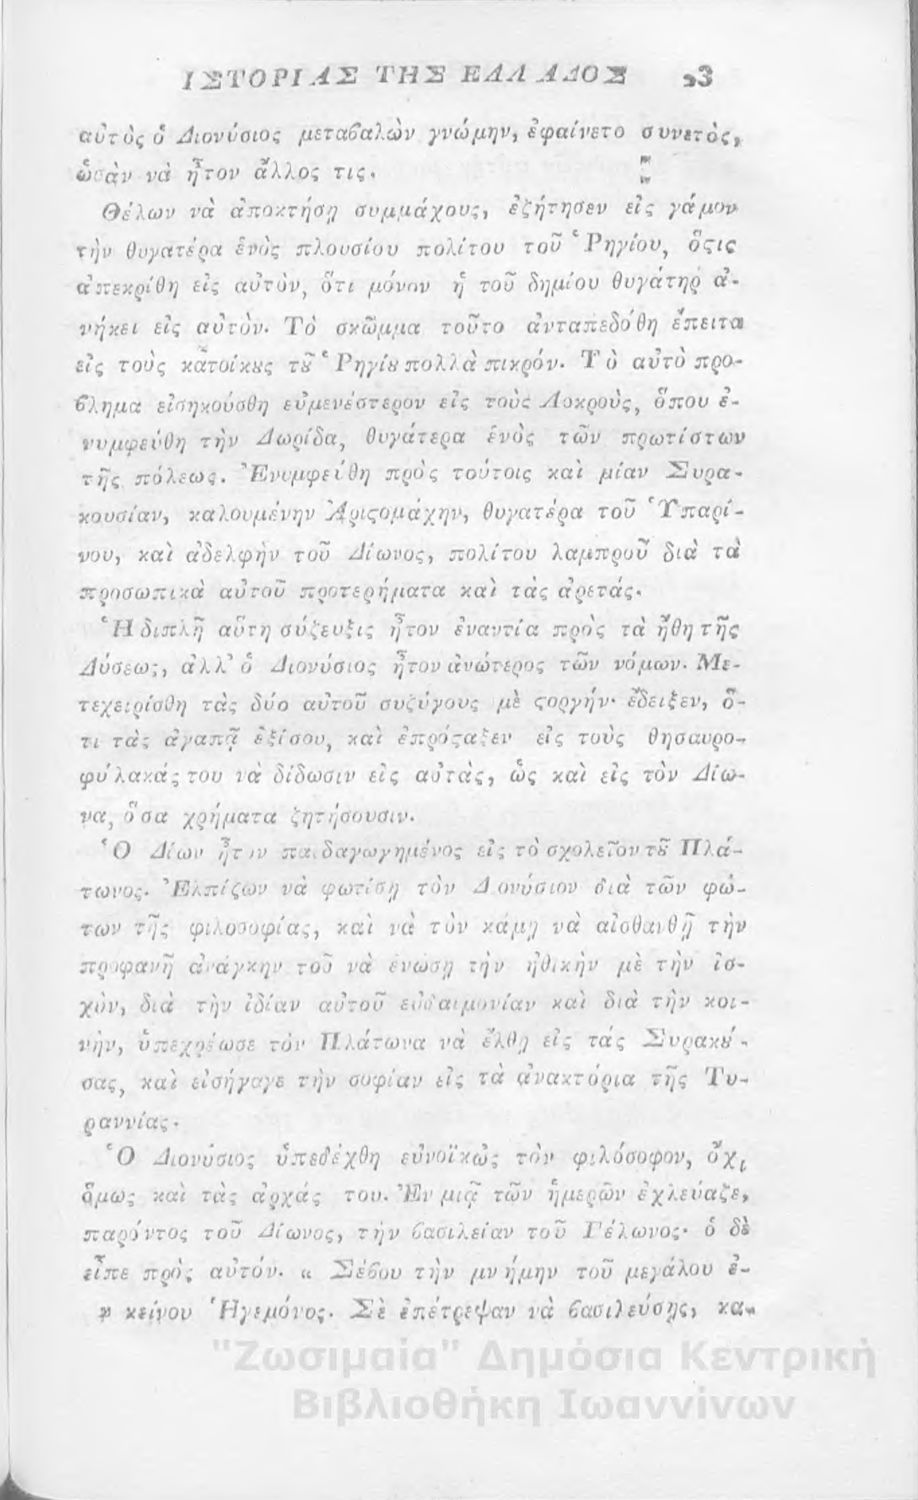 ΙΣΤΟΡΙΑΣ ΤΗΣ ΕΛΛΑΔΟΣ 23
αὐτὸς ὁ Διονύσιος μεταβαλὼν γνώμην, ἐφαίνετο συνετὸς,
ὡσὰν νὰ ἦτον ἄλλος τις.
Θέλων νὰ ἀποκτήσῃ συμμάχους, ἐζήτησεν εἰς γάμον
τὴν θυγατέρα ἑνὸς πλουσίου πολίτου τοῦ Ῥηγίου, ὅςις
ἀπεκρίθη εἰς αὐτὸν, ὅτι μόνον ἡ τοῦ δημίου θυγάτηρ ἀ-
νήκει εἰς αὐτόν. Τὸ σκῶμμα τοῦτο ἀνταπεδόθη ἔπειτα
εἰς τοὺς κατοίκȣς τȣ͂ Ῥηγίȣ πολλὰ πικρόν. Τὸ αὐτὸ προ-
βλημα εἰσηκούσθη εὐμενέστερον εἰς τοὺς Λοκροὺς, ὅπου ἐ-
νυμφεύθη τὴν Δωρίδα, θυγάτερα ἑνὸς τῶν πρωτίστων
τῆς πόλεως. Ἐνυμφεύθη πρὸς τούτοις καὶ μίαν Συρα-
κουσίαν, καλουμένην Ἀριςομάχην, θυγατέρα τοῦ Ὑπαρί-
νου, καὶ ἀδελφὴν τοῦ Δίωνος, πολίτου λαμπροῦ διὰ τὰ
προσωπικὰ αὐτοῦ προτερήματα καὶ τὰς ἀρετάς.
Ἡ διπλῆ αὕτη σύζευξις ἦτον ἐναντία πρὸς τὰ ἤθη τῆς
Δύσεως, ἀλλ' ὁ Διονύσιος ἦτον ἀνώτερος τῶν νόμων. Με-
τεχειρίσθη τὰς δύο αὐτοῦ συζύγους μὲ ςοργήν· ἔδειξεν, ὅ-
τι τὰς ἀγαπᾷ ἐξίσου, καὶ ἐπρόςαξεν εἰς τοὺς θησαυρο-
φύλακάς του νὰ δίδωσιν εἰς αὐτὰς, ὡς καὶ εἰς τὸν Δίω-
να, ὅσα χρήματα ζητήσουσιν.
Ὁ Δίων ἦτον παιδαγωγημένος εἰς τὸ σχολεῖον τȣ͂ Πλά-
τωνος. Ἐλπίζων νὰ φωτίσῃ τὸν Διονύσιον διὰ τῶν φώ-
των τῆς φιλοσοφίας, καὶ νὰ τὸν κάμῃ νὰ αἰσθανθῇ τὴν
προφανῆ ἀνάγκην τοῦ νὰ ἑνώσῃ τὴν ἠθικὴν μὲ τὴν ἰσ-
χὺν, διὰ τὴν ἰδίαν αὐτοῦ εὐδαιμονίαν καὶ διὰ τὴν κοι-
νὴν, ὑπεχρέωσε τὸν Πλάτωνα νὰ ἔλθῃ εἰς τὰς Συρακȣ́-
σας, καὶ εἰσήγαγε τὴν σοφίαν εἰς τὰ ἀνακτόρια τῆς Τυ-
ραννίας.
Ὁ Διονύσιος ὑπεδέχθη εὐνοϊκῶς τὸν φιλόσοφον, ὄχι
ὅμως καὶ τὰς ἀρχάς του. Ἐν μιᾷ τῶν ἡμερῶν ἐχλεύαζε,
παρόντος τοῦ Δίωνος, τὴν βασιλείαν τοῦ Γέλωνος· ὁ δὲ
εἶπε πρὸς αὐτόν. « Σέβου τὴν μνήμην τοῦ μεγάλου ἐ-
» κείνου Ἡγεμόνος. Σὲ ἐπέτρεψαν νὰ βασιλεύσῃς, κα-
"Ζωσιμαία" Δημόσια Κεντρική
Βιβλιοθήκη Ιωαννίνων